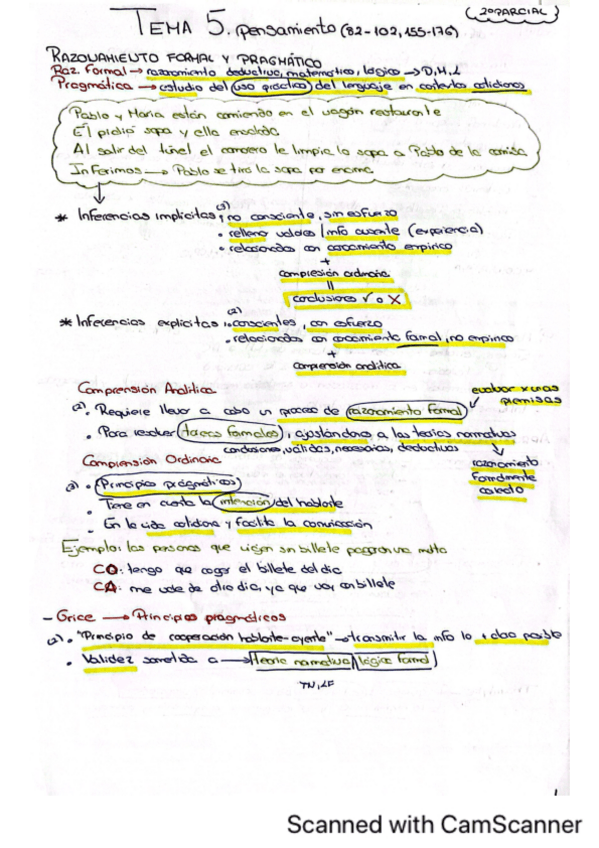 (2ºPARCIAL)
TEMA 5. pensamiento (82-102, 155-176)
RAZONAMIENTO FORMAL Y PRAGMÁTICO
Raz. Formal → razonamiento deductivo, matemático, lógico → D, M, L
Pragmática → estudio del uso práctico del lenguaje en contextos cotidianos
Pablo y Maria están comiendo en el vagón restaurante
Él pidió sopa y ella ensalada
Al salir del túnel el camarero le limpia la sopa a Pablo de la camisa
Inferimos → Pablo se tira la sopa por encima
* Inferencias implícitas (3) • no consciente, sin esfuerzo
• relleno valores / info ausente (experiencia)
• relacionadas con conocimiento empírico
+
compresión ordinaria
||
conclusiones V o X
* Inferencias explícitas (2) • conscientes, con esfuerzo
• relacionadas con conocimiento formal, no empírico
+
comprensión analítica
Comprensión Analítica
evaluar x unas premisas
(2) • Requiere llevar a cabo un proceso de razonamiento formal
• Para resolver tareas formales, ajustándonos a las teorías normativas
conclusiones, válidas, necesarias, deductivas
razonamiento formalmente correcto
Comprensión Ordinaria
(3) • Principios pragmáticos
• Tiene en cuenta la intención del hablante
• En la vida cotidiana y facilita la comunicación
Ejemplo: las personas que viajen sin billete pagarán una multa
CO: tengo que coger el billete del día
CA: me vale de otro día, ya que voy con billete
- Grice → Principios pragmáticos
(2) • "Principio de cooperación hablante-oyente" → transmitir la info lo + claro posible
• Validez sometida a → teoría normativa / lógica formal
TN, LF
1
Scanned with CamScanner